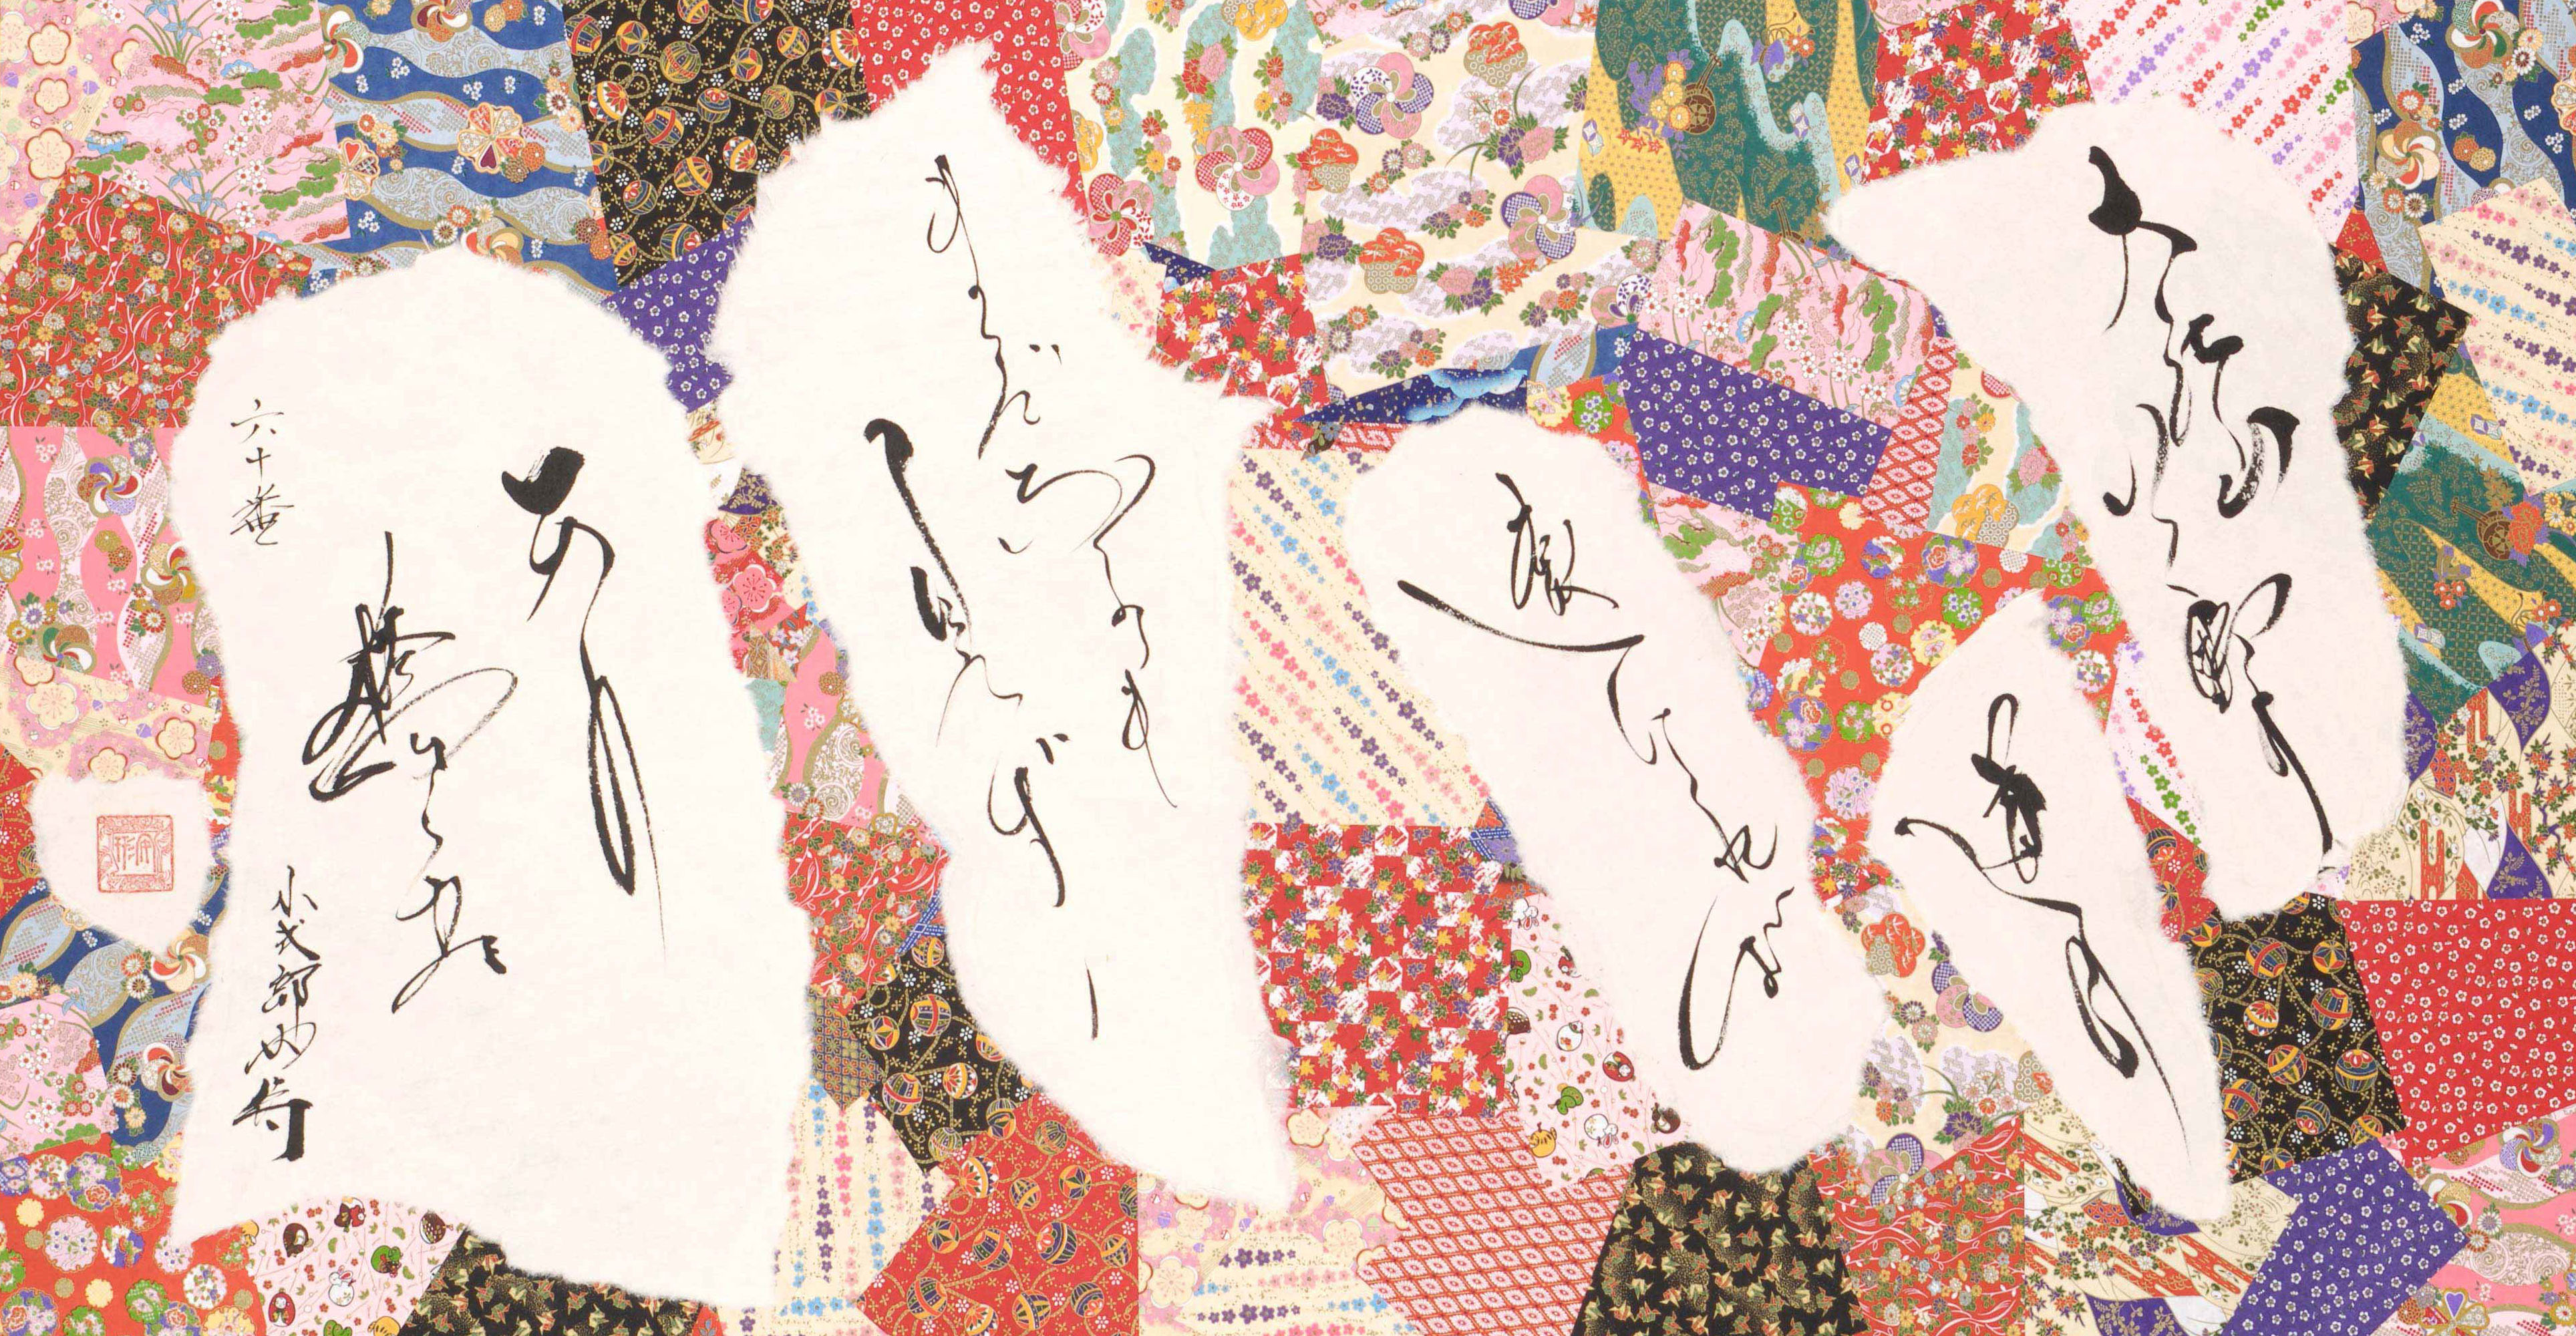 大江山いく野の
道の
遠ければ
まだふみも
見ず
天の
橋立
六十番
小式部内侍